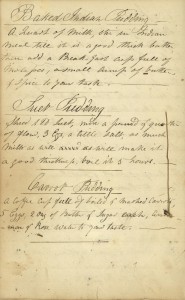 Baked Indian Pudding
A Quart of Milk, stir in Indian
Meal till it is a good thick batter
then add a Breakfast cup full of
Molasses, a small lump of Butter
& Spice to your taste
Suet Pudding
1 lb Suet, near a pound & quarter
of flour, 3 Eggs, a little salt, as much
Milk as will make it
a good thickness, boil it 5 hours.
Carrot Pudding
A Coffee cup full of boiled & mashed Carrots
5 Eggs, 2 oz of Butter & Sugar each,
Rose water to your taste